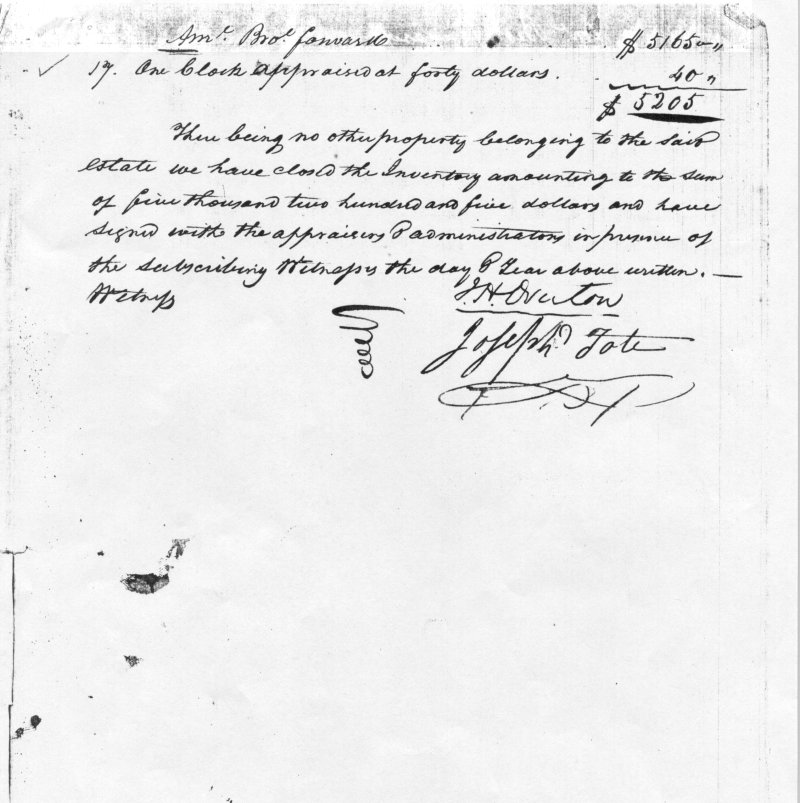 Amt. Brot. forward $ 5165 "
17. One Clock appraised at forty dollars. 40 "
$ 5205
There being no other property belonging to the said
estate we have closed the Inventory amounting to the sum
of five thousand two hundred and five dollars and have
signed with the appraisers & administrators in presence of
the subscribing Witnesses the day & Year above written. —
Witness J. H. Overton
Joseph Tate